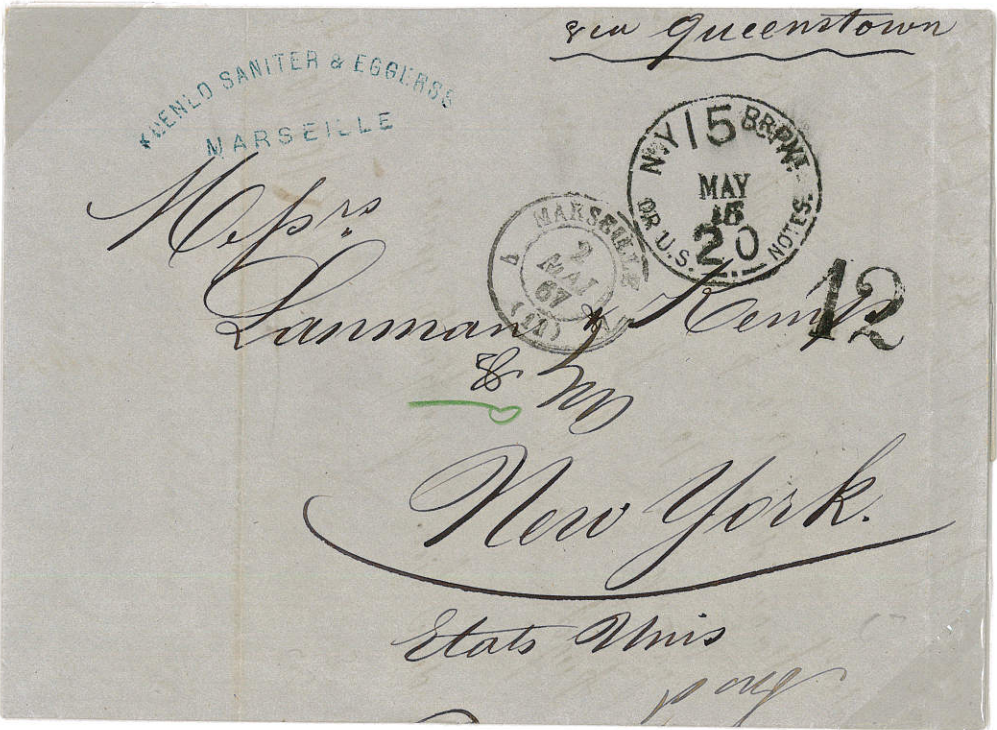 via Queenstown
KUENLO SANITER & EGGERSS
MARSEILLE
N.Y. 15 BR.PKT.
MAY
15
20
OR U.S. NOTES
MARSEILLE
2
MAI
67
(1)
12
Messrs
Lanman & Kemp
New York.
Etats Unis